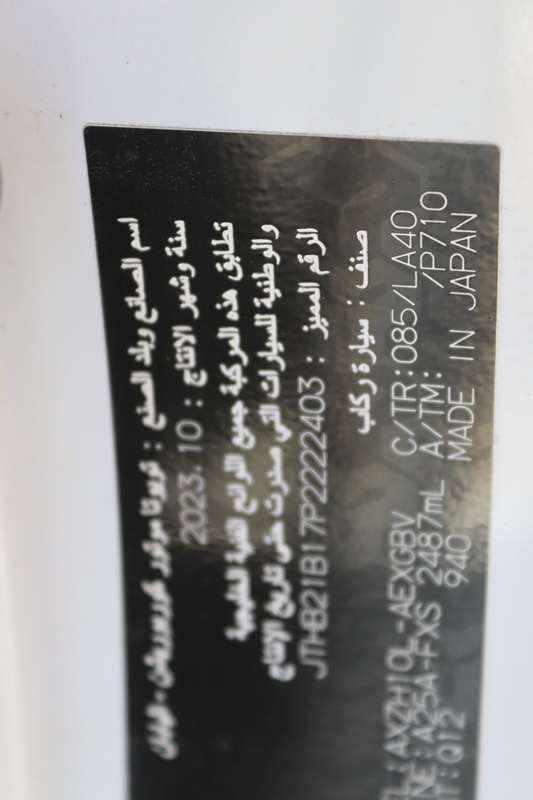 اسم الصانع وبلد الصنع : تويوتا موتور كوربوريشن - اليابان
سنة وشهر الانتاج : 2023.10
تطابق هذه المركبة جميع اللوائح الفنية الخليجية
والوطنية للسيارات التي صدرت حتى تاريخ الإنتاج
الرقم المميز : JTHB21B17P2222403
صنف : سيارة ركاب
L: AXZH10L-AEXGBV C/TR:085/LA40
NE: A25A-FXS 2487mL A/TM: /P710
T:Q12 940 MADE IN JAPAN